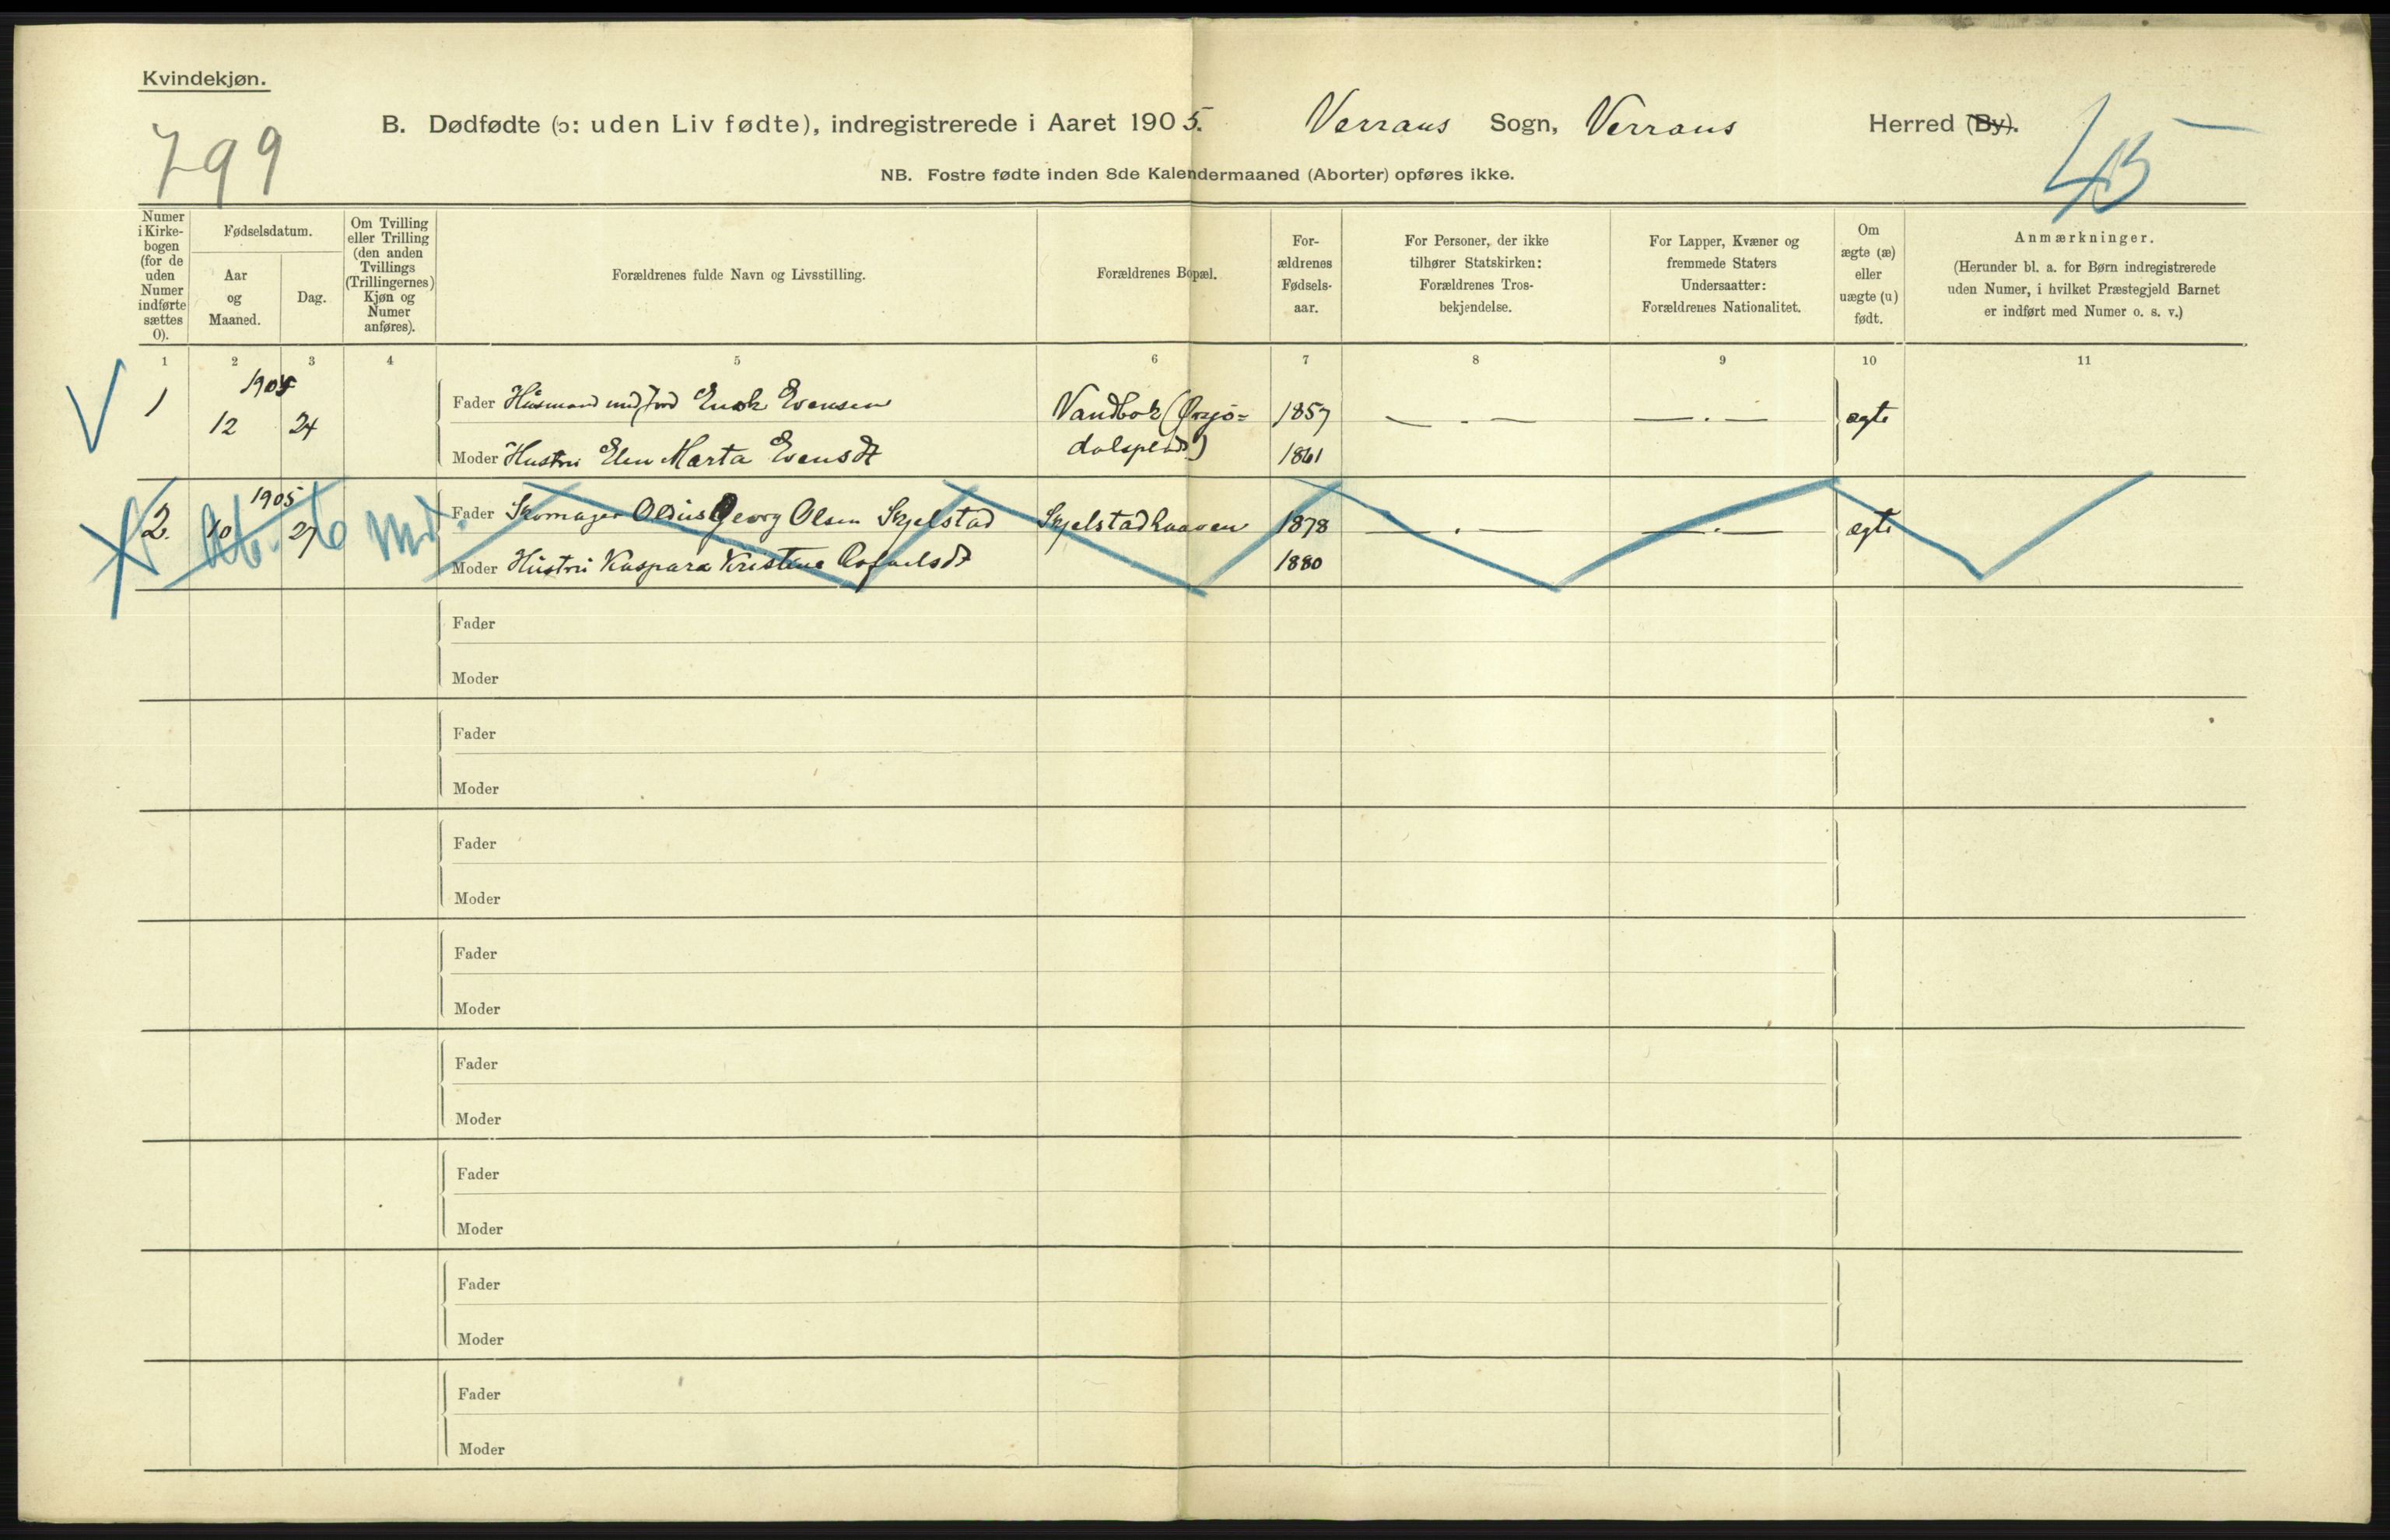 Kvindekjøn.
799
B. Dødfødte (ɔ: uden Liv fødte), indregistrerede i Aaret 1905. Verrans Sogn, Verrans Herred (By).
45
NB. Fostre fødte inden 8de Kalendermaaned (Aborter) opføres ikke.
Numer
i Kirke-
bogen
(for de
uden
Numer
indførte
sættes
0).
Fødselsdatum.
Aar
og
Maaned.
Dag.
Om Tvilling
eller Trilling
(den anden
Tvillings
(Trillingernes)
Kjøn og
Numer
anføres).
Forældrenes fulde Navn og Livsstilling.
Forældrenes Bopæl.
For-
ældrenes
Fødsels-
aar.
For Personer, der ikke
tilhører Statskirken:
Forældrenes Tros-
bekjendelse.
For Lapper, Kvæner og
fremmede Staters
Undersaatter:
Forældrenes Nationalitet.
Om
ægte (æ)
eller
uægte (u)
født.
Anmærkninger.
(Herunder bl. a. for Børn indregistrerede
uden Numer, i hvilket Præstegjeld Barnet
er indført med Numer o. s. v.)
1 2 3 4 5 6 7 8 9 10 11
1905
1 12 24
Fader Husmand med Jord Enok Evensen Vandbok 1857 — . — — . — ægte
Moder Hustru Elen Marta Evensdt 1861
1905
2. 10 27 Ab. 6 Md.
Fader Skomager Oldus Georg Olsen Skjelstad Skjelstadhaaven 1878 — . — — . — ægte
Moder Hustru Kaspara Kristine 1880
Fader
Moder
Fader
Moder
Fader
Moder
Fader
Moder
Fader
Moder
Fader
Moder
Fader
Moder
Fader
Moder